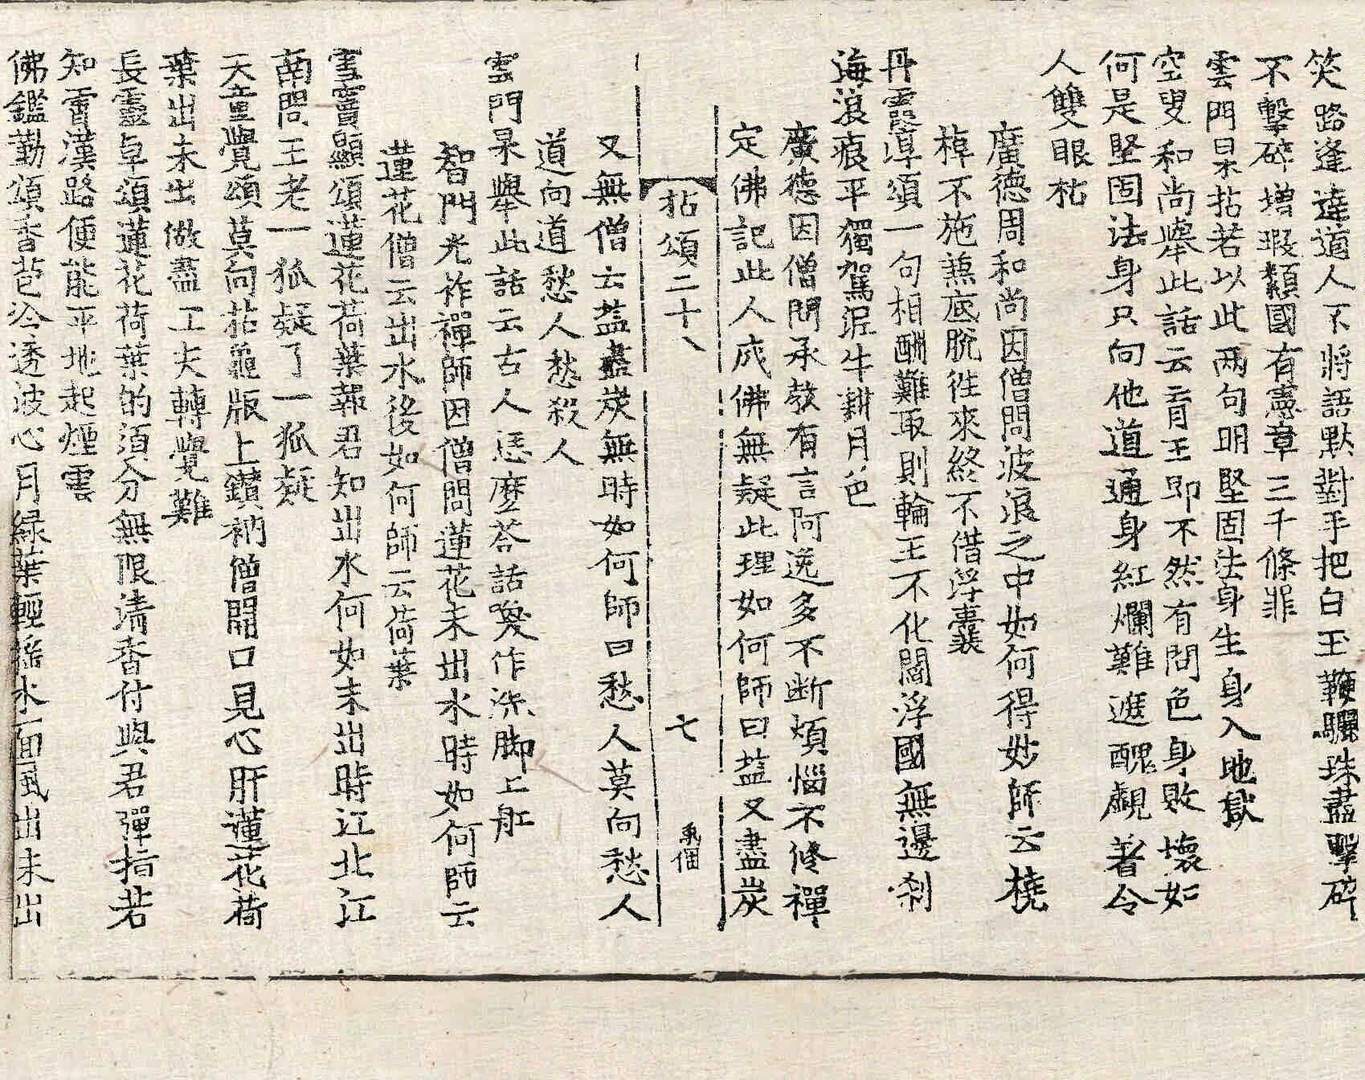 笑路逢達道人不將語默對手把白玉鞭驪珠盡擊碎
不擊碎增瑕纇國有憲章三千條罪
雲門杲拈若以此兩句明堅固法身生身入地獄
空叟和尚舉此話云育王即不然有問色身敗壞如
何是堅固法身只向他道通身紅爛難遮醜覷著令
人雙眼枯
廣德周和尚因僧問波浪之中如何得妙師云橈
棹不施蒸底脫徃來終不借浮囊
丹霞淳頌一句相酬難取則輪王不化閻浮國無邊刹
海浪痕平獨駕泥牛耕月色
廣德因僧問承教有言阿逸多不断煩惱不修禪
定佛記此人成佛無疑此理如何師曰盐又盡炭
拈頌二十八
七
又無僧云盐盡炭無時如何師曰愁人莫向愁人
道向道愁人愁殺人
雲門杲舉此話云古人恁麽荅話㗳作洗脚上舡
智門光祚禪師因僧問蓮花未出水時如何師云
蓮花僧云出水後如何師云荷葉
雪竇顯頌蓮花荷葉報君知出水何如未出時江北江
南問王老一狐疑了一狐疑
天童覺頌莫向拈龜版上鑽衲僧開口見心肝蓮花荷
葉出未出做盡工夫轉覺難
長靈卓頌蓮花荷葉的須分無限清香付與君彈指若
知霄漢路便能平地起煙雲
佛鑑勤頌香苞冷透波心月緑葉輕搖水面風出未出